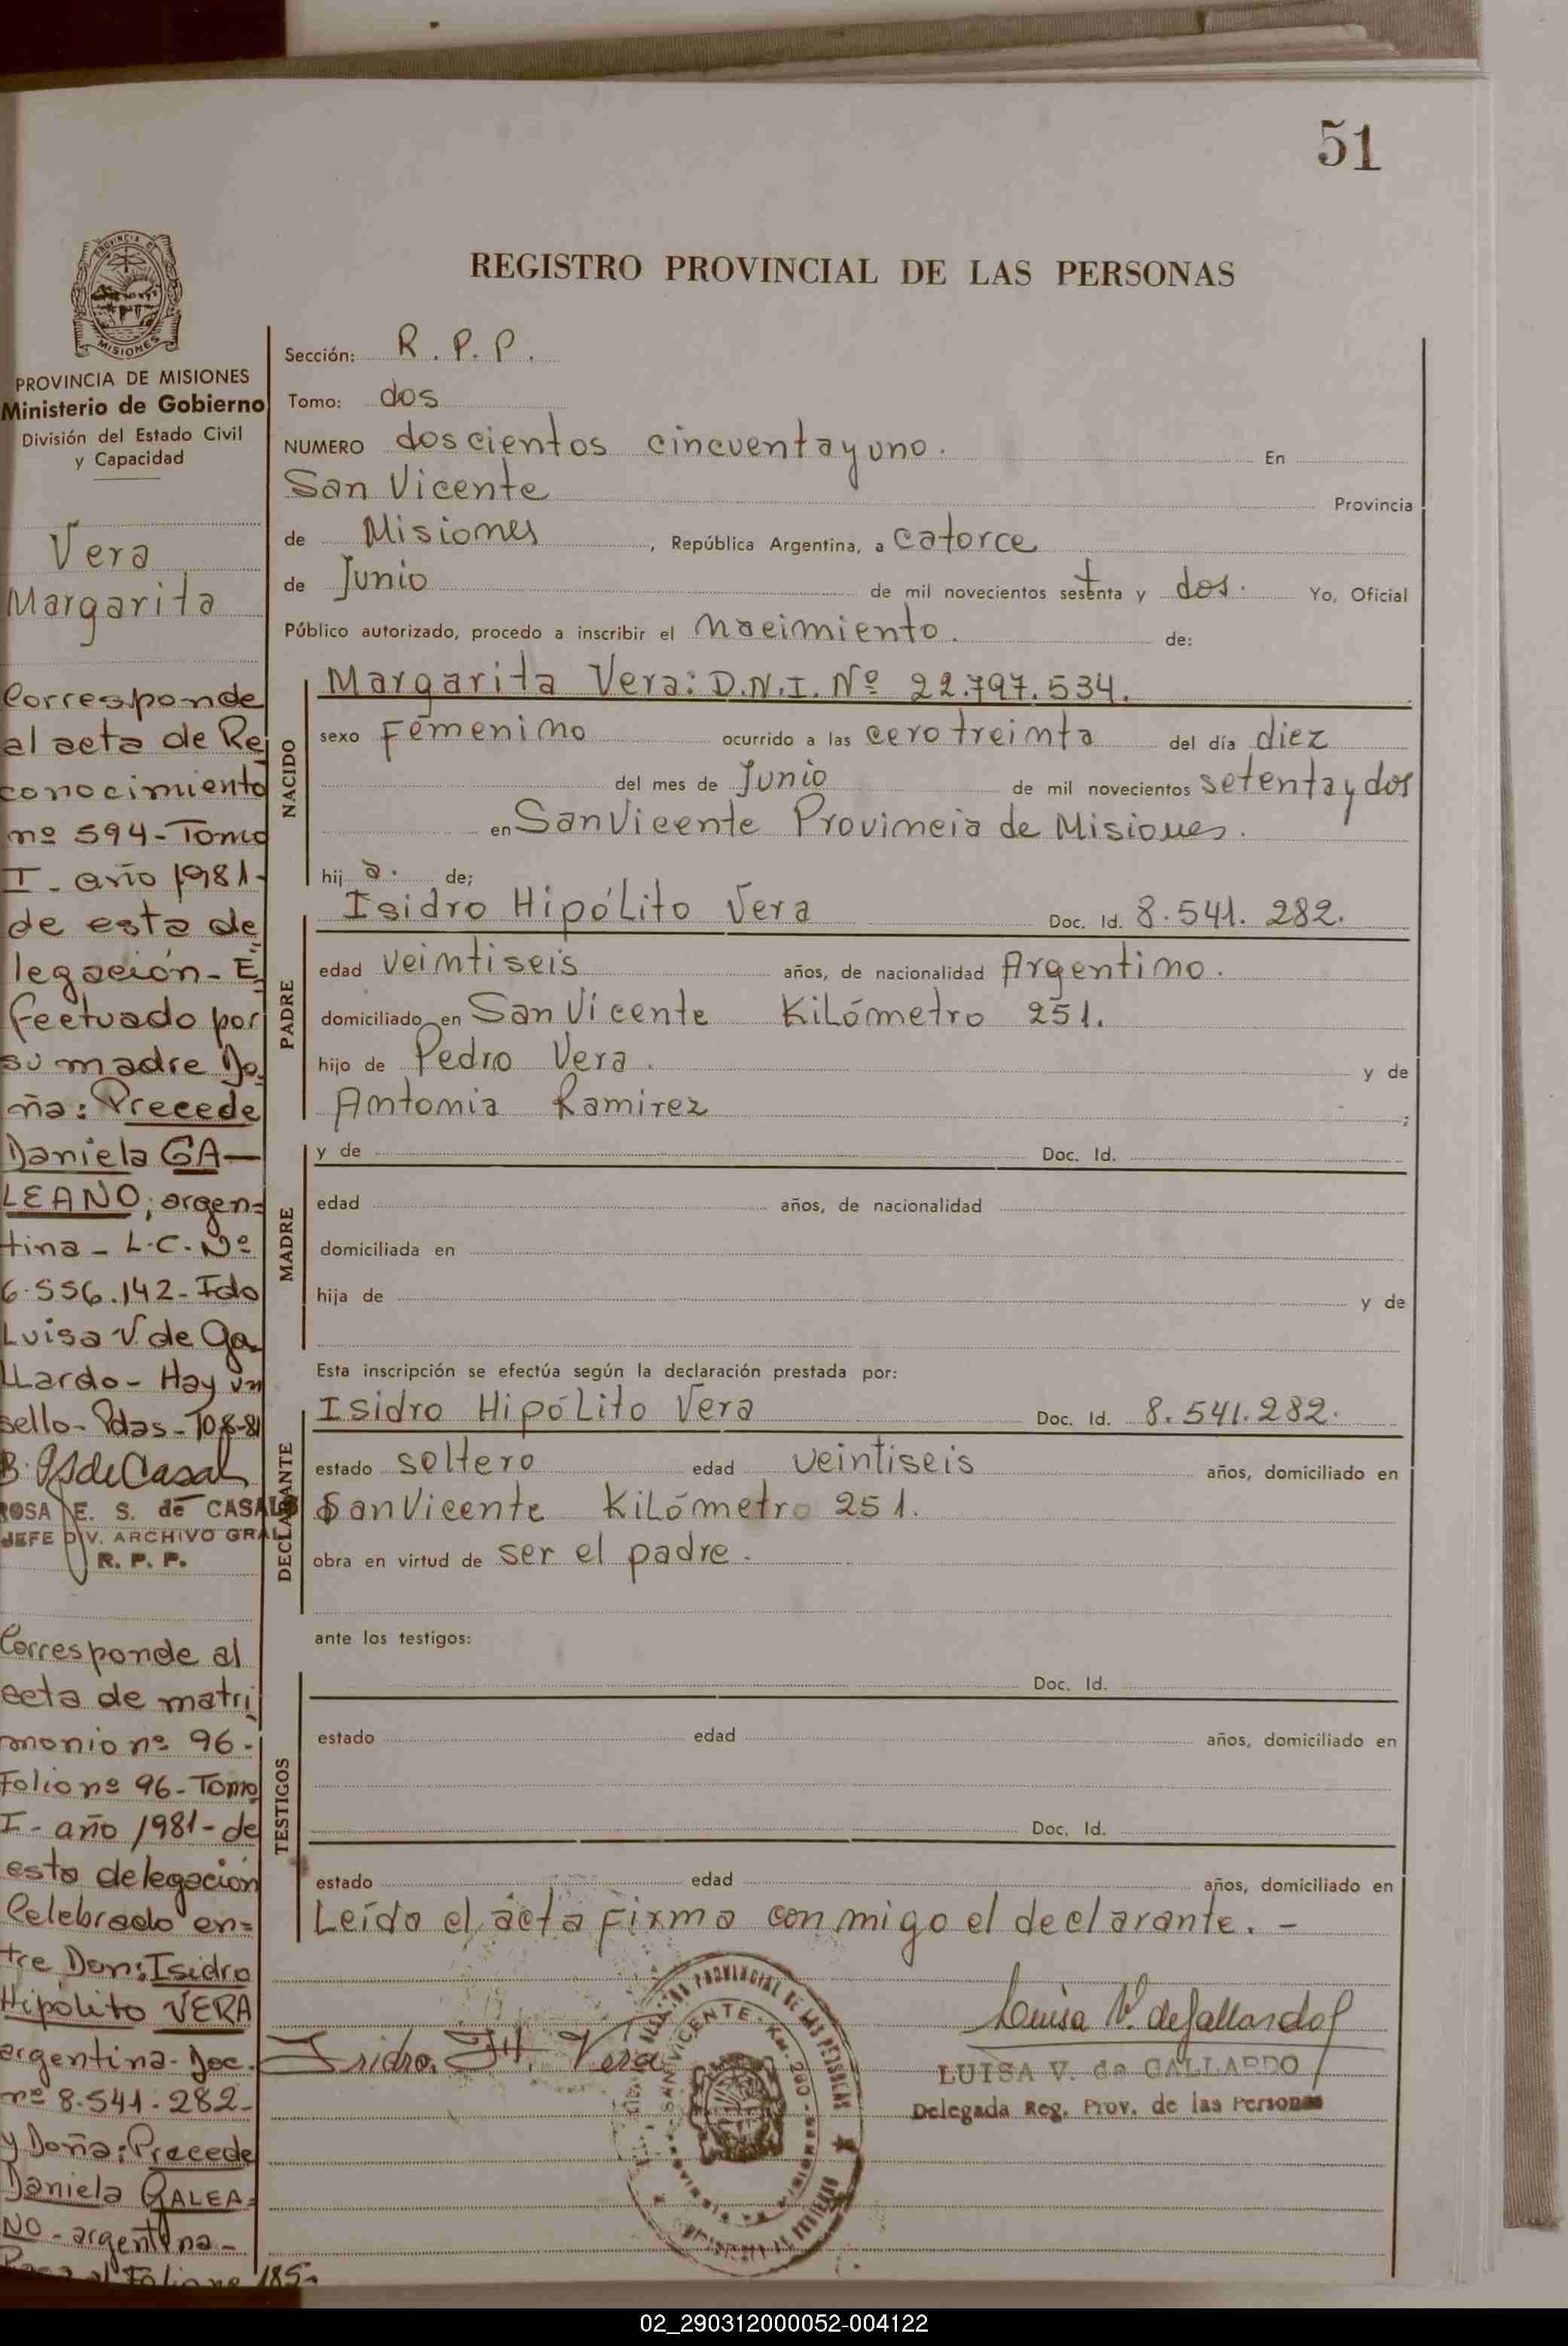 51
REGISTRO PROVINCIAL DE LAS PERSONAS
MISIONES
PROVINCIA DE MISIONES
Ministerio de Gobierno
División del Estado Civil
y Capacidad
Vera
Margarita
Corresponde
al acta de Re
conocimiento
nº 594-Tomo
I - año 1981-
de esta de
legación - E
fectuado por
su madre Do
ña: Precede
Daniela GA-
LEANO; argen=
tina - L.C. Nº
6.556.142 - Fdo
Luisa V. de Ga
LLardo - Hay un
sello - Pdas - 10-8-81
ROSA E. S. de CASALS
JEFE DIV. ARCHIVO GRAL
R. P. P.
Corresponde al
acta de matri
monio nº 96 -
Folio nº 96 - Tomo
I - año 1981 - de
esta delegación
Celebrado en=
tre Don: Isidro
Hipólito VERA
argentina - Doc.
nº 8.541.282 -
y Doña: Precede
Daniela GALEA=
NO - argentina -
Pasa al Folio nº 185-
Sección: R. P. P.
Tomo: dos
NUMERO doscientos cincuenta y uno. En
San Vicente Provincia
de Misiones, República Argentina, a catorce
de Junio de mil novecientos setenta y dos. Yo, Oficial
Público autorizado, procedo a inscribir el nacimiento. de:
NACIDO
Margarita Vera: D.N.I. Nº 22.797.534.
sexo Femenino ocurrido a las cero treinta del día diez
del mes de Junio de mil novecientos setenta y dos
en San Vicente Provincia de Misiones.
hij a. de;
PADRE
Isidro HipóLito Vera Doc. Id. 8.541.282.
edad veintiseis años, de nacionalidad Argentino.
domiciliado en San Vicente KiLómetro 251.
hijo de Pedro Vera. y de
Antonia Ramirez ;
MADRE
y de Doc. Id.
edad años, de nacionalidad
domiciliada en
hija de y de
Esta inscripción se efectúa según la declaración prestada por:
DECLARANTE
Isidro HipóLito Vera Doc. Id. 8.541.282.
estado soltero edad veintiseis años, domiciliado en
San Vicente KiLómetro 251.
obra en virtud de ser el padre.
ante los testigos:
TESTIGOS
Doc. Id.
estado edad años, domiciliado en
Doc. Id.
estado edad años, domiciliado en
Leída el acta firma conmigo el declarante. -
Isidro H. Vera
Luisa V. de Gallardo
LUISA V. de GALLARDO
Delegada Reg. Prov. de las Personas
02_290312000052-004122